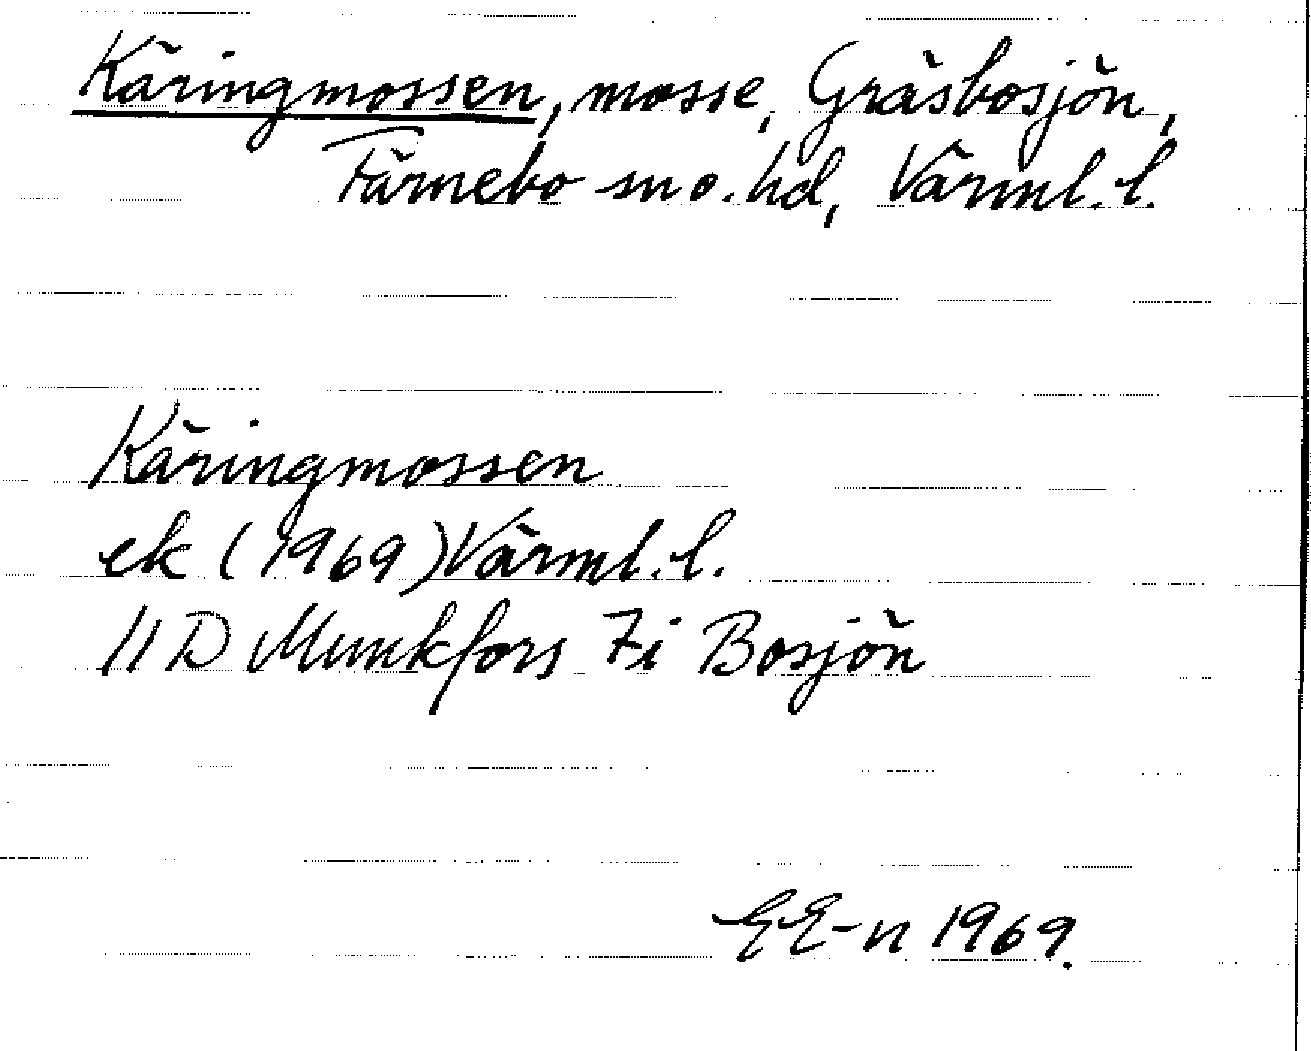 Käringmossen, mosse, Gräsbosjön,
Färnebo sn o. hd, Värml. l.
Käringmossen
ek (1969) Värml. l.
11 D Munkfors 7i Bosjön
EE-n 1969.